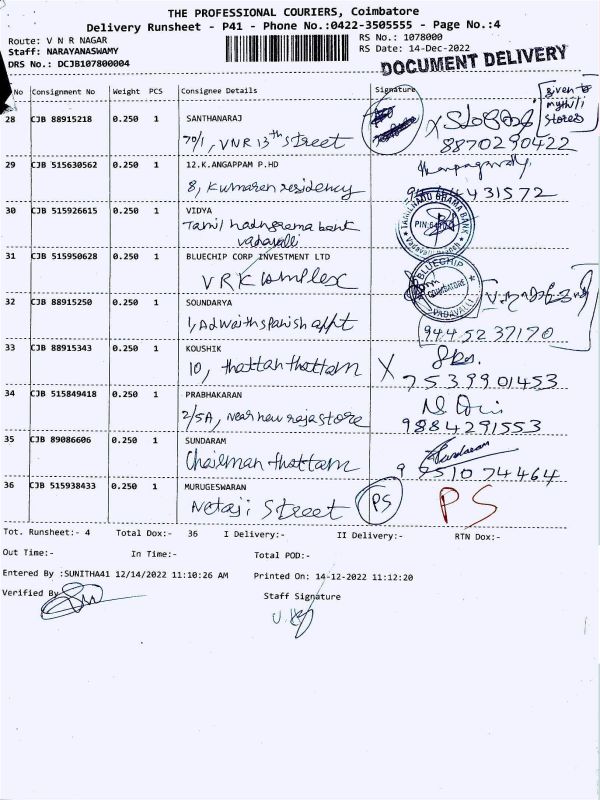 THE PROFESSIONAL COURIERS, Coimbatore
Delivery Runsheet - P41 - Phone No.:0422-3505555 - Page No.:4
Route: V N R NAGAR
RS No.: 1078000
Staff: NARAYANASWAMY
RS Date: 14-Dec-2022
DRS No.: DCJB107800004
DOCUMENT DELIVERY
No Consignment No Weight PCS Consignee Details Signature
given to
mythili
stores
28 CJB 88915218 0.250 1 SANTHANARAJ
70/1, VNR 13th street
8870290422
29 CJB 515630562 0.250 1 12.K.ANGAPPAM P.HD
8, Kumaran residency
30 CJB 515926615 0.250 1 VIDYA
Tamil nadu grama bank
vadavalli
TAMILNADU GRAMA BANK
Vadavalli Branch
31 CJB 515950628 0.250 1 BLUECHIP CORP INVESTMENT LTD
VRK complex
BLUECHIP
COIMBATORE
VADAVALLI
32 CJB 88915250 0.250 1 SOUNDARYA
1, Adwaiths parish appt
9445237170
33 CJB 88915343 0.250 1 KOUSHIK
10, thottam thottam
X
7539901453
34 CJB 515849418 0.250 1 PRABHAKARAN
2/5A, near new raja store
9884291553
35 CJB 89086606 0.250 1 SUNDARAM
Chairman thottam
Sundaram
9251074464
36 CJB 515938433 0.250 1 MURUGESWARAN
Netaji street
PS
PS
Tot. Runsheet:- 4 Total Dox:- 36 I Delivery:- II Delivery:- RTN Dox:-
Out Time:- In Time:- Total POD:-
Entered By :SUNITHA41 12/14/2022 11:10:26 AM Printed On: 14-12-2022 11:12:20
Verified By
Staff Signature